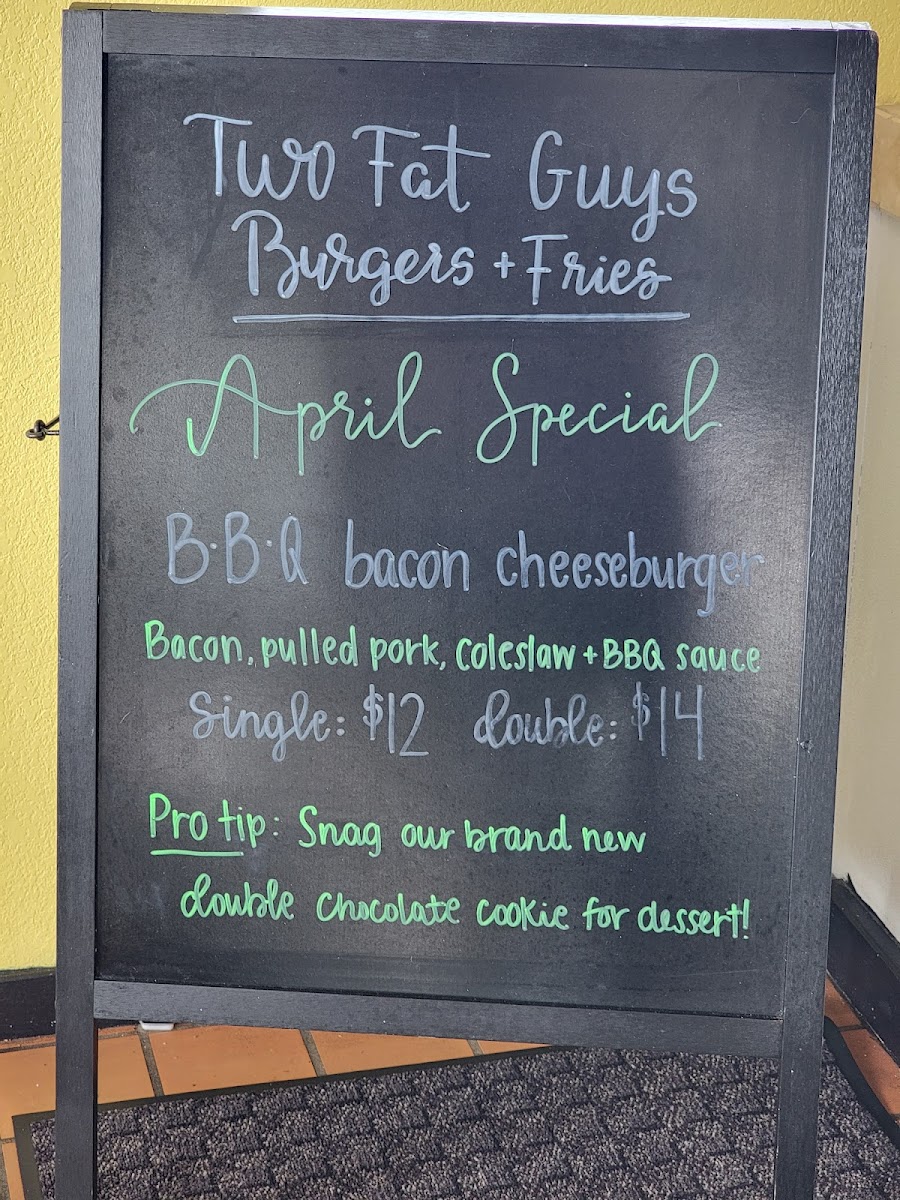 Two Fat Guys
Burgers + Fries
April Special
B·B·Q bacon cheeseburger
Bacon, pulled pork, coleslaw + BBQ sauce
Single: $12 double: $14
Pro tip: Snag our brand new
double chocolate cookie for dessert!